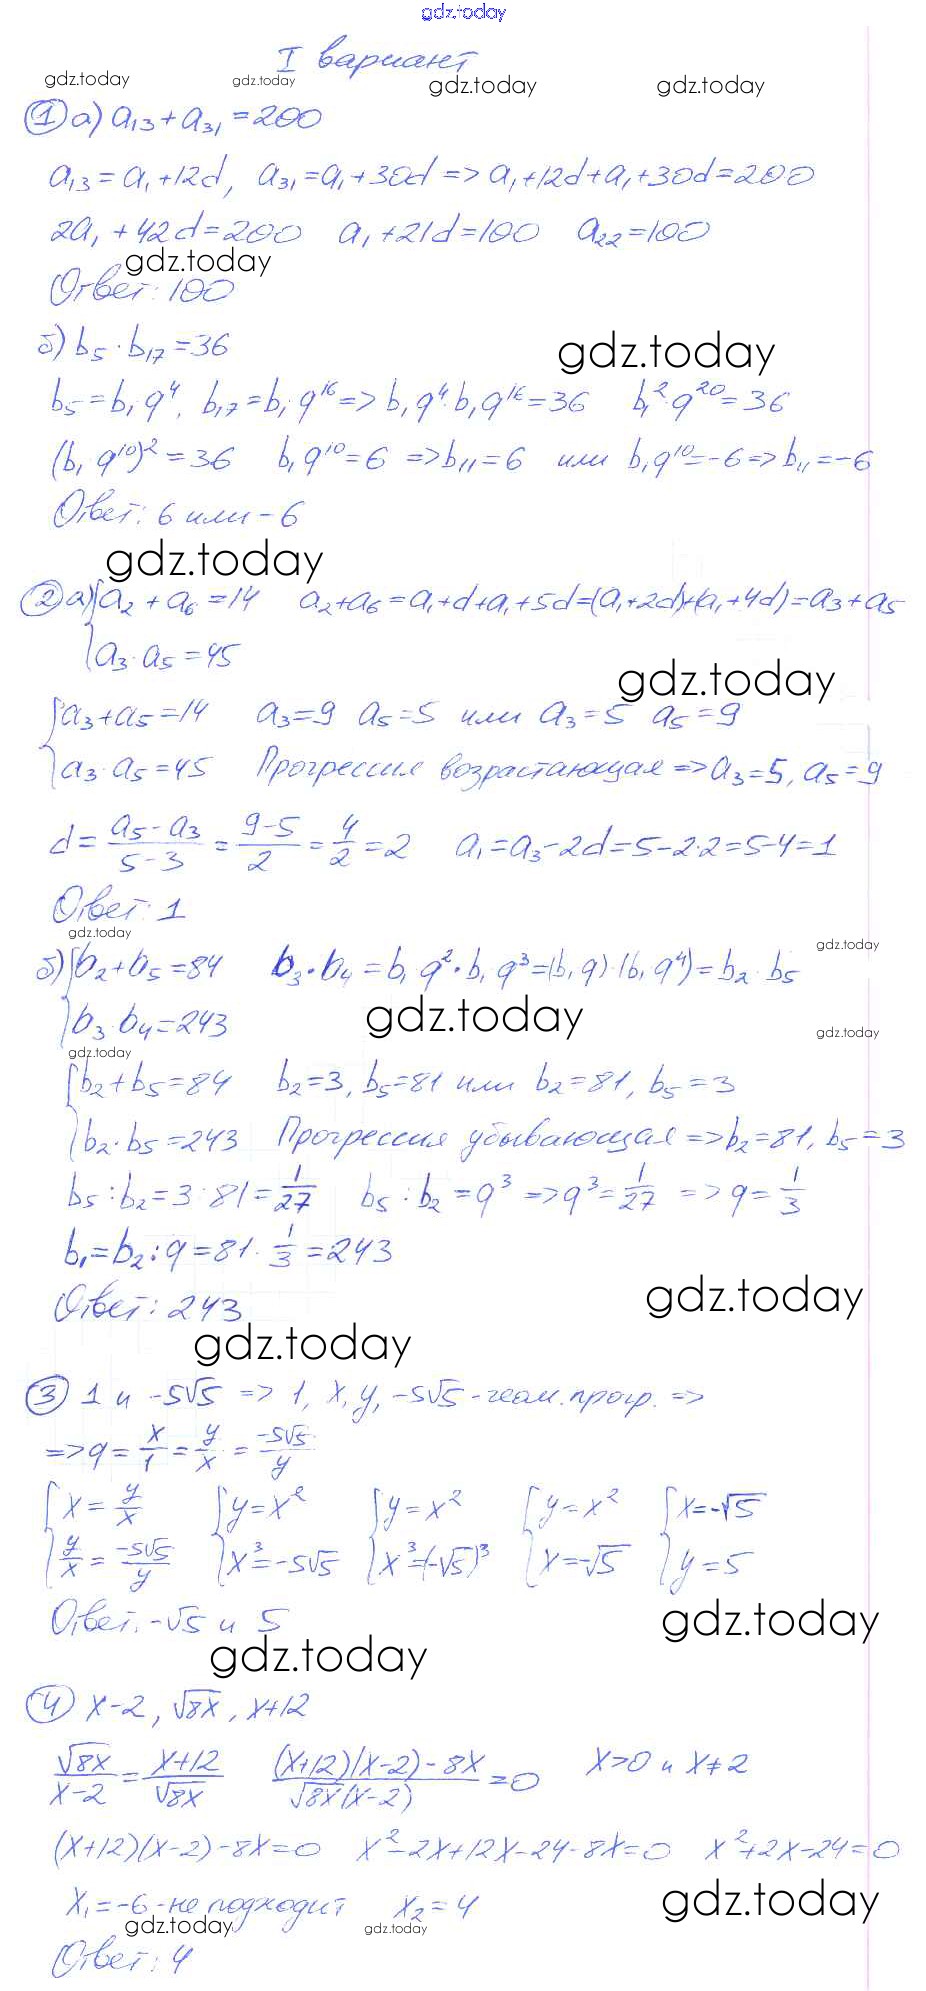 gdz.today
I вариант
gdz.today gdz.today gdz.today gdz.today
① а) a₁₃ + a₃₁ = 200
a₁₃ = a₁ + 12d, a₃₁ = a₁ + 30d => a₁ + 12d + a₁ + 30d = 200
2a₁ + 42d = 200 a₁ + 21d = 100 a₂₂ = 100
gdz.today
Ответ: 100
б) b₅ · b₁₇ = 36
gdz.today
b₅ = b₁ q⁴, b₁₇ = b₁ · q¹⁶ => b₁ q⁴ · b₁ q¹⁶ = 36 b₁² · q²⁰ = 36
(b₁ q¹⁰)² = 36 b₁ q¹⁰ = 6 => b₁₁ = 6 или b₁ q¹⁰ = -6 => b₁₁ = -6
Ответ: 6 или -6
gdz.today
② а) { a₂ + a₆ = 14 a₂ + a₆ = a₁ + d + a₁ + 5d = (a₁ + 2d) + (a₁ + 4d) = a₃ + a₅
a₃ · a₅ = 45
gdz.today
{ a₃ + a₅ = 14 a₃ = 9 a₅ = 5 или a₃ = 5 a₅ = 9
a₃ · a₅ = 45 Прогрессия возрастающая => a₃ = 5, a₅ = 9
d = (a₅ - a₃)/(5 - 3) = (9 - 5)/2 = 4/2 = 2 a₁ = a₃ - 2d = 5 - 2·2 = 5 - 4 = 1
Ответ: 1
gdz.today gdz.today
б) { b₂ + b₅ = 84 b₃ · b₄ = b₁ q² · b₁ q³ = (b₁ q) · (b₁ q⁴) = b₂ · b₅
b₃ · b₄ = 243
gdz.today gdz.today
gdz.today
{ b₂ + b₅ = 84 b₂ = 3, b₅ = 81 или b₂ = 81, b₅ = 3
b₂ · b₅ = 243 Прогрессия убывающая => b₂ = 81, b₅ = 3
b₅ : b₂ = 3 : 81 = 1/27 b₅ : b₂ = q³ => q³ = 1/27 => q = 1/3
b₁ = b₂ : q = 81 · 1/3 = 243
gdz.today
Ответ: 243
gdz.today
③ 1 и -5√5 => 1, x, y, -5√5 - геом. прогр. =>
=> q = x/1 = y/x = -5√5/y
{ x = y/x { y = x² { y = x² { y = x² { x = -√5
y/x = -5√5/y x³ = -5√5 x³ = (-√5)³ x = -√5 y = 5
Ответ: -√5 и 5
gdz.today
gdz.today
④ x - 2, √8x, x + 12
√8x/(x - 2) = (x + 12)/√8x ((x + 12)(x - 2) - 8x)/(√8x (x - 2)) = 0 x > 0 и x ≠ 2
(x + 12)(x - 2) - 8x = 0 x² - 2x + 12x - 24 - 8x = 0 x² + 2x - 24 = 0
gdz.today
x₁ = -6 - не подходит x₂ = 4
gdz.today gdz.today
Ответ: 4